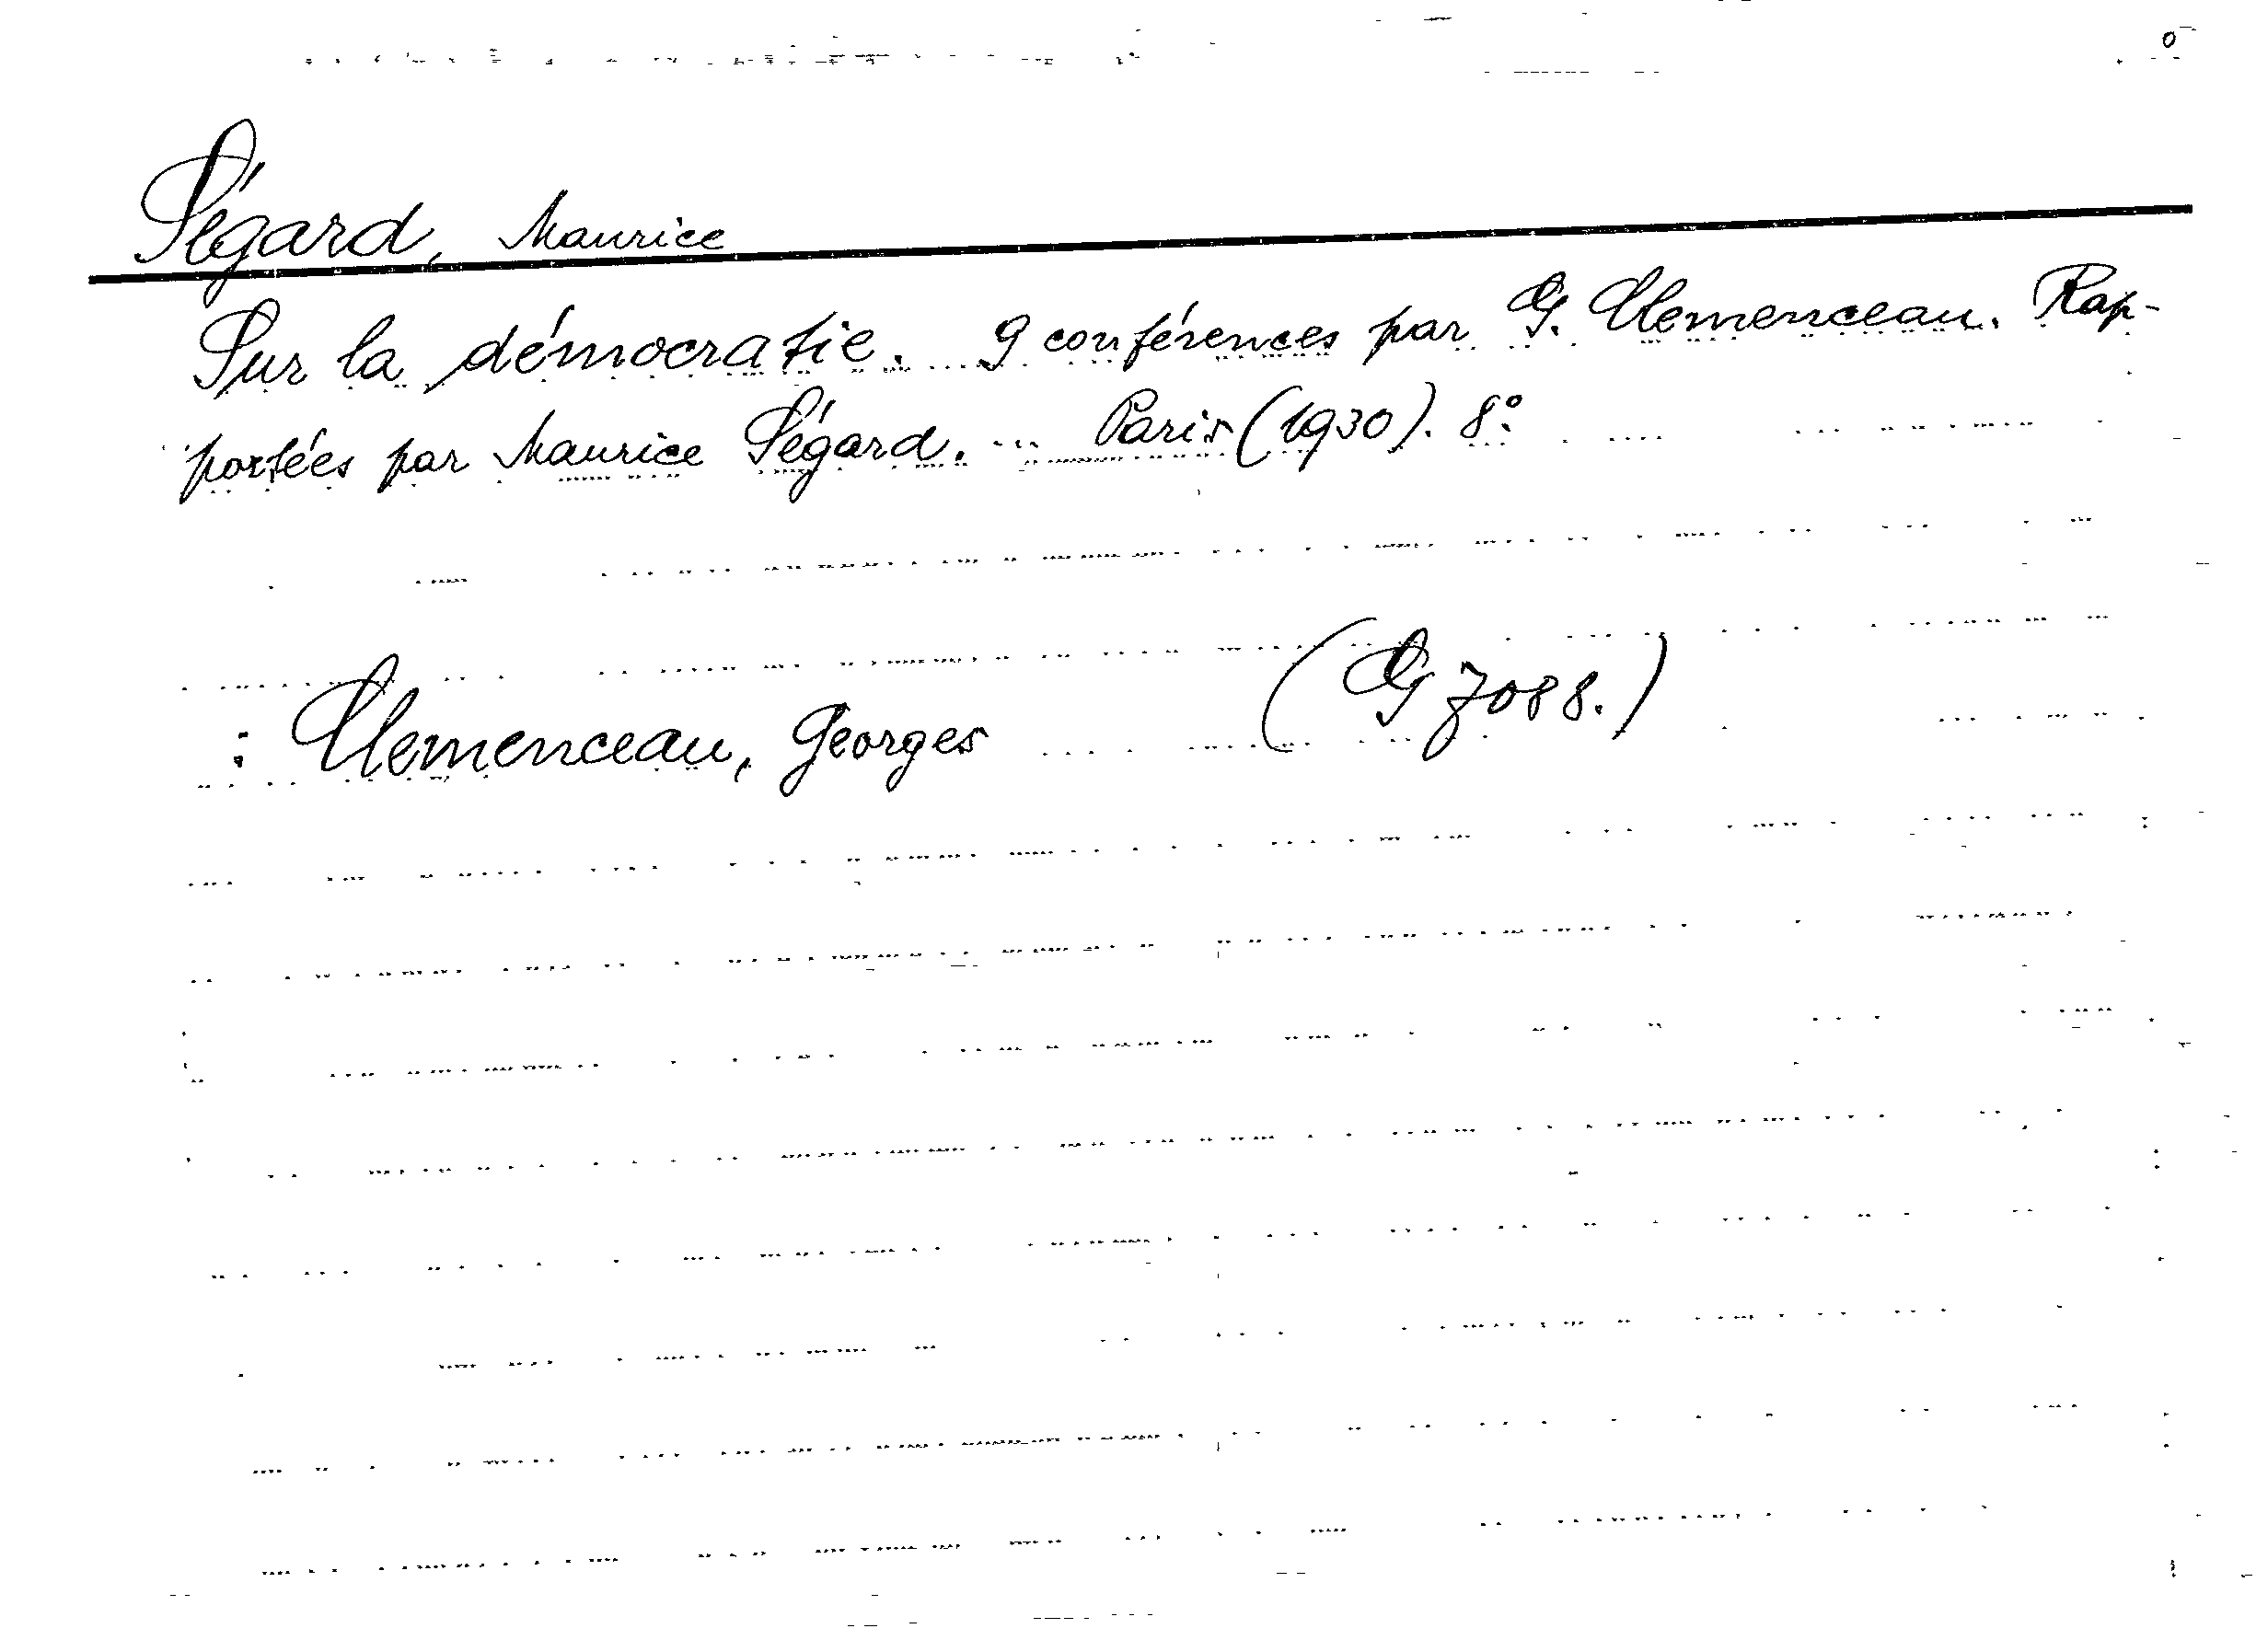 Ségard, Maurice
Sur la démocratie. 9 conférences par G. Clemenceau. Rap-
portées par Maurice Ségard. Paris (1930). 8°.
: Clemenceau, Georges (G 7088.)